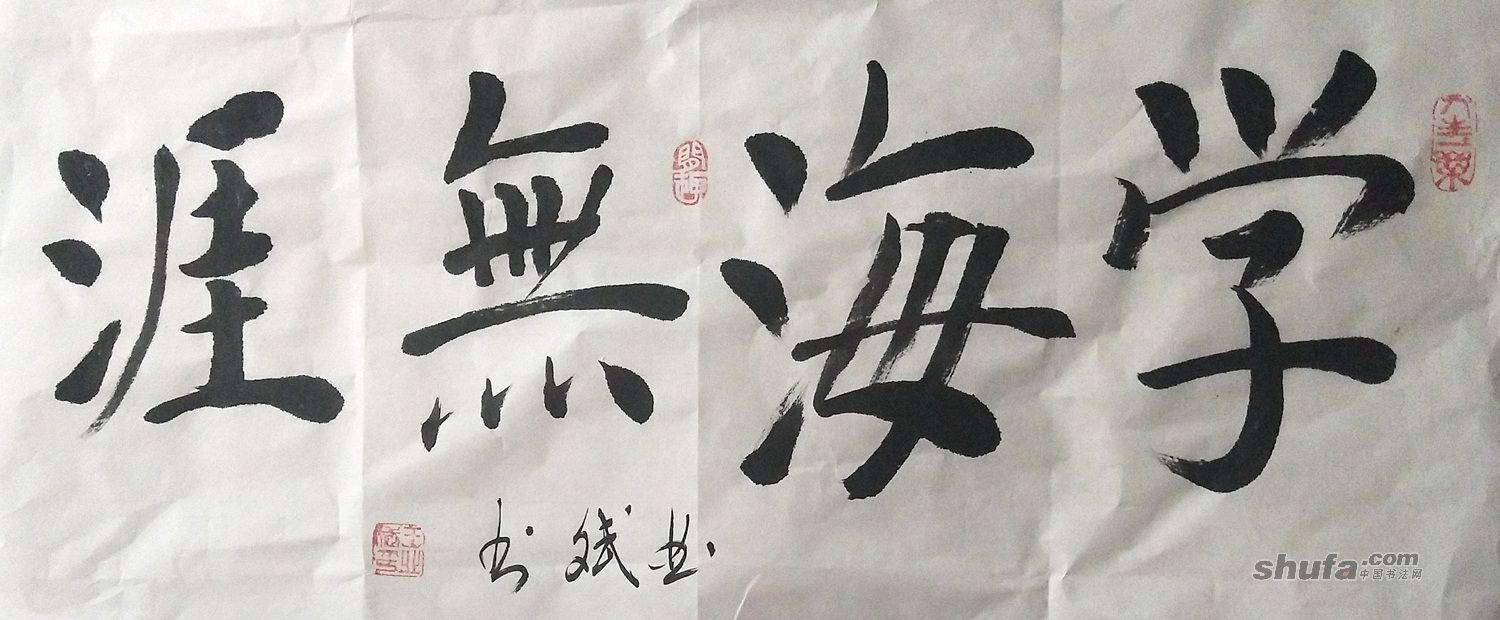 学海無涯
业斌书
shufa.com
中国书法网